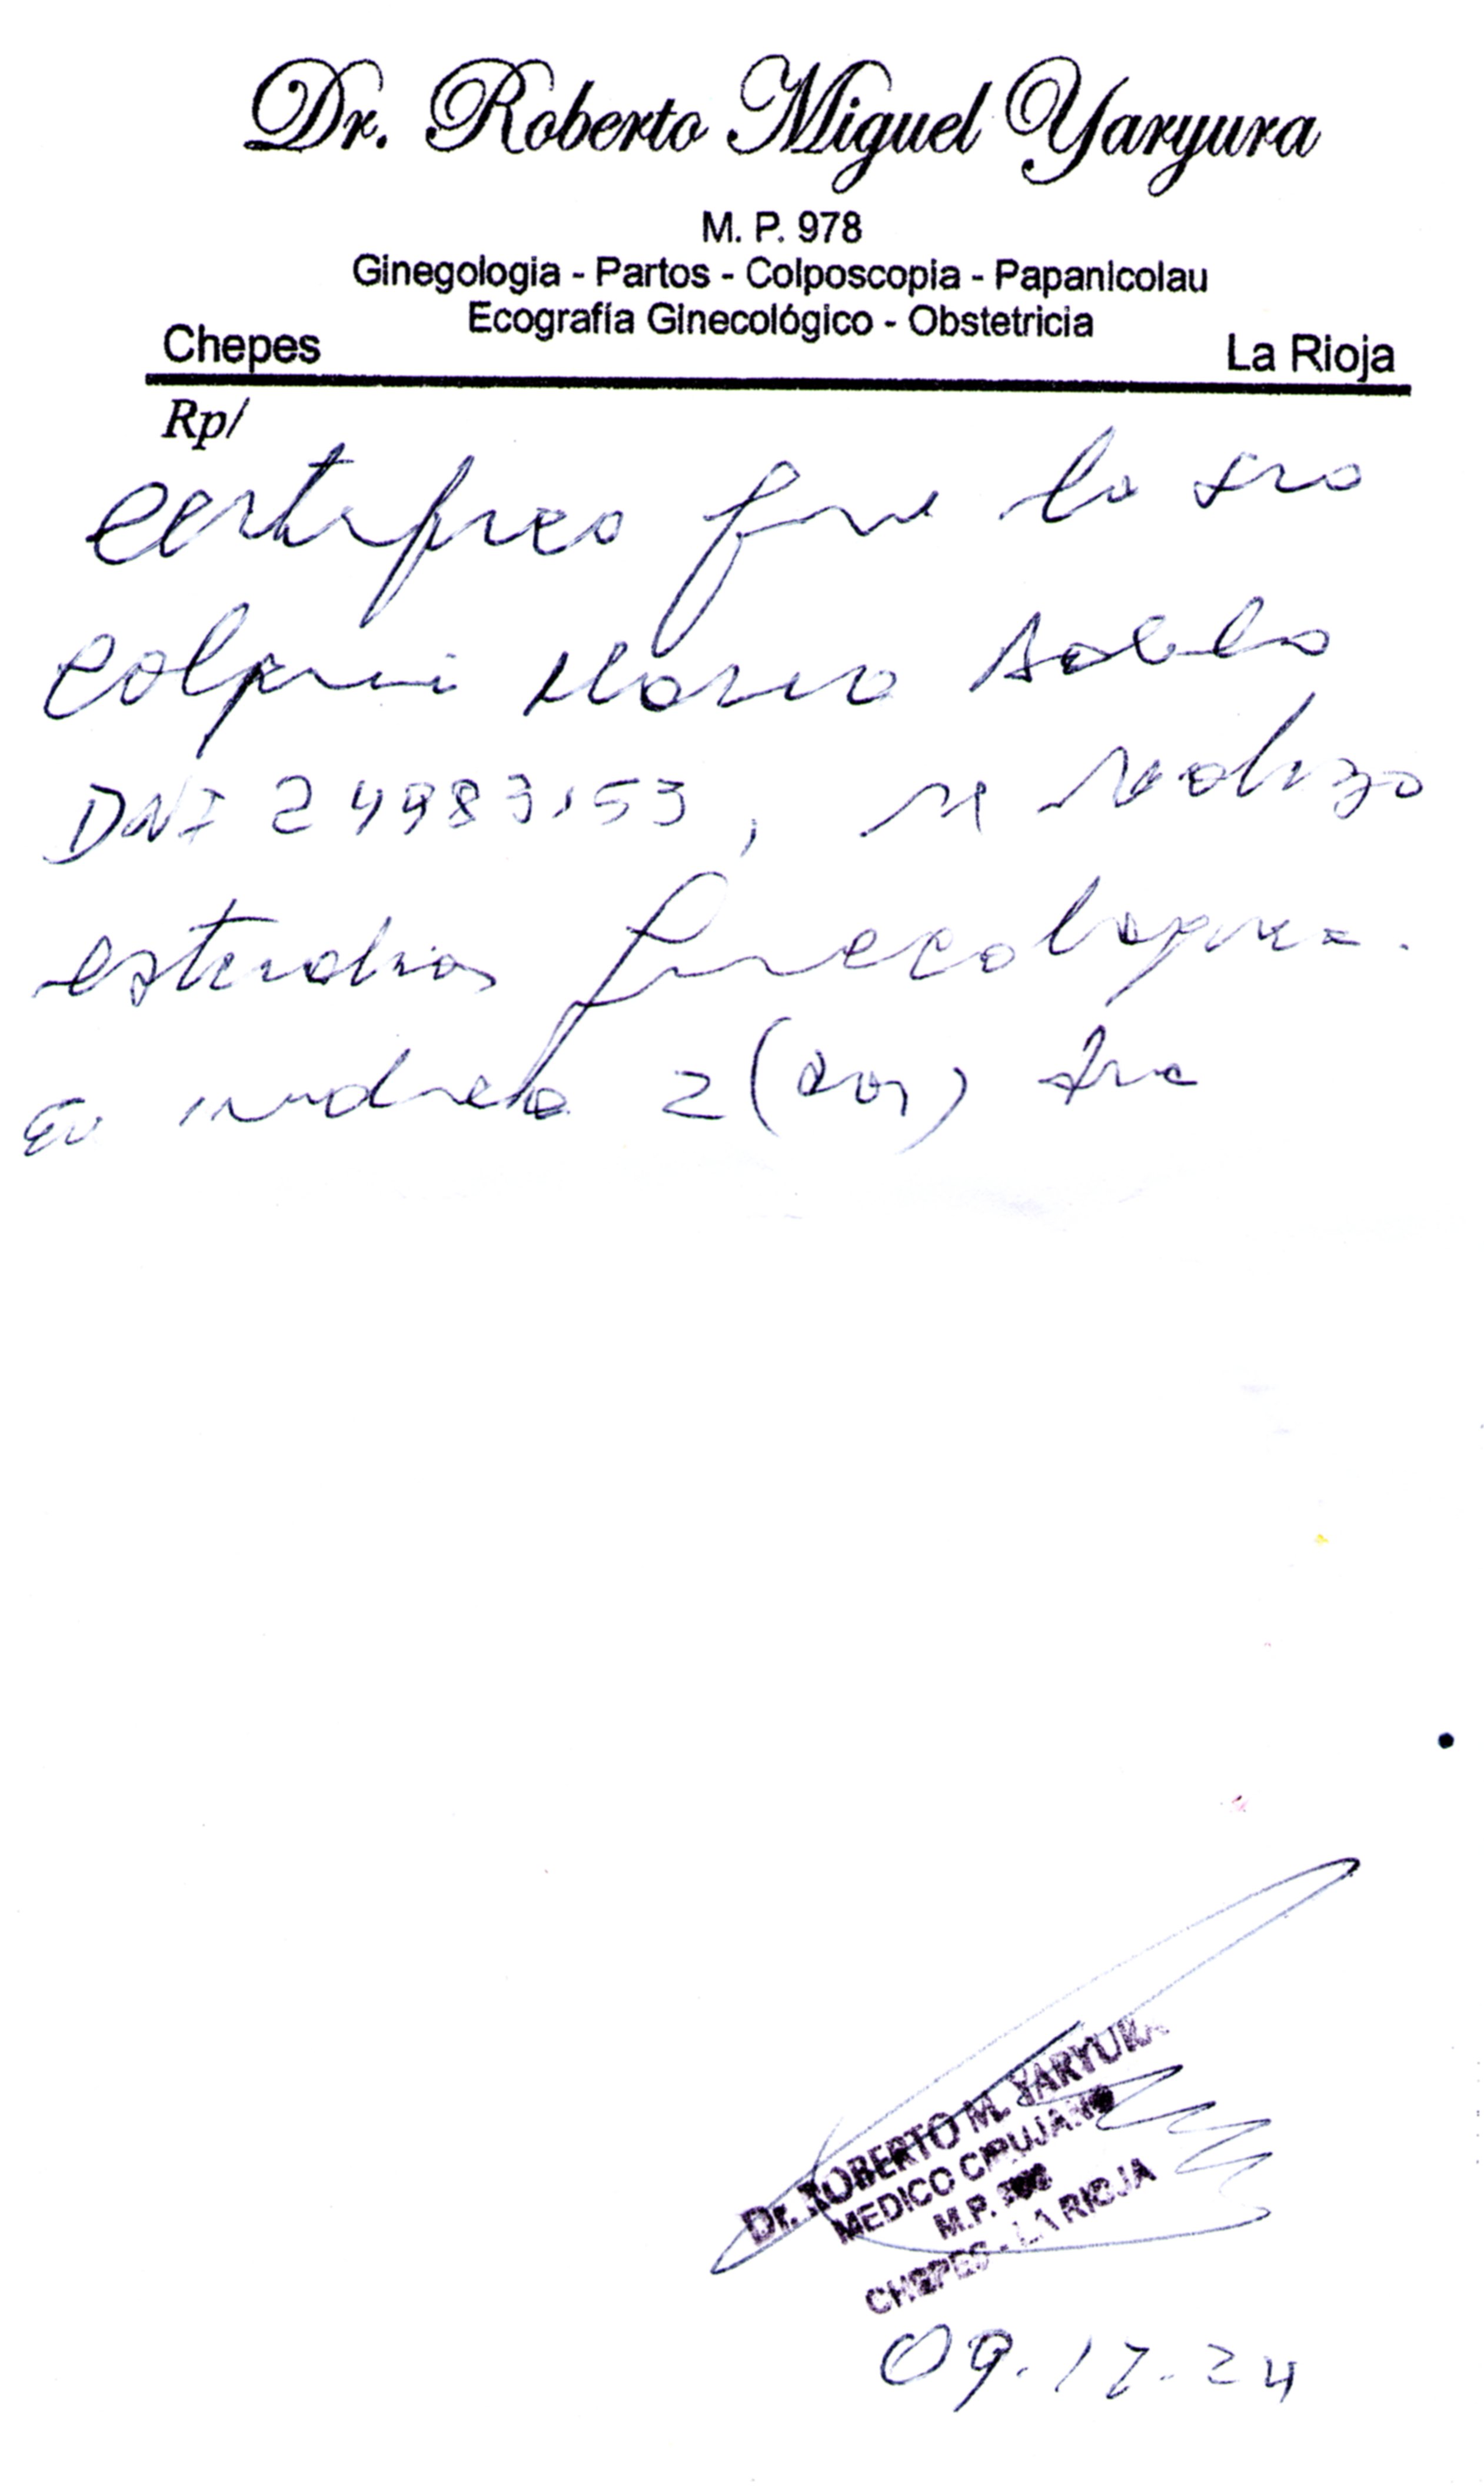 Dr. Roberto Miguel Yaryura
M. P. 978
Ginegologia - Partos - Colposcopia - Papanicolau
Ecografía Ginecológico - Obstetricia
Chepes La Rioja
Rp/
Certifico que la sra
Maria
DNI 24983153, se realizo
estudios ginecologico.
Se indica 2 (dos)
Dr. ROBERTO M. YARYURA
MEDICO CIRUJANO
M.P.
CHEPES - LA RIOJA
09.12.24